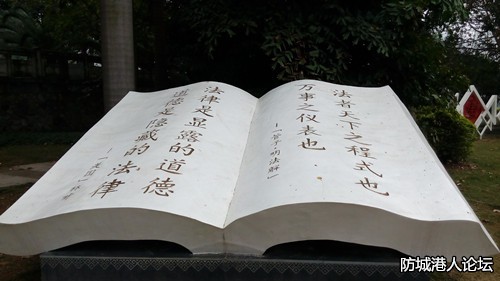 法者天下之程式也
万事之仪表也
—《管子·明法解》
法律是显露的道德
道德是隐藏的法律
—（美国）林肯
防城港人论坛